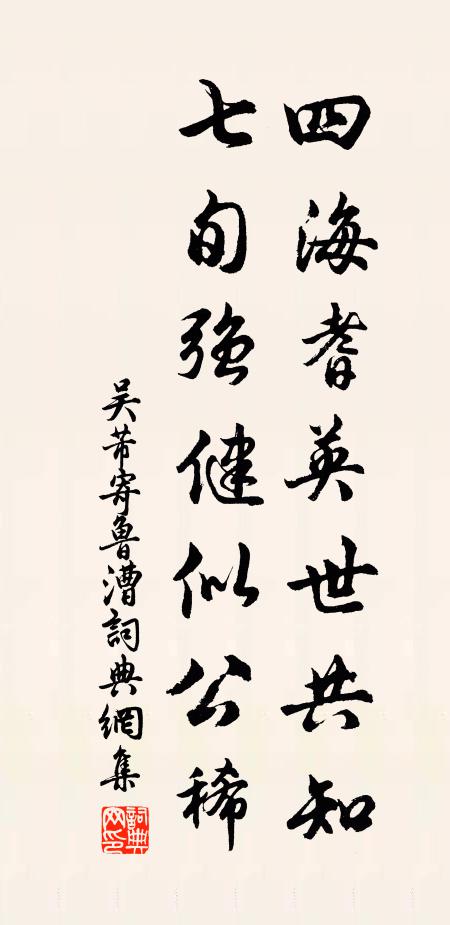 四海耆英世共知
七旬强健似公稀
吴芾寄魯漕詞典網集
詞典网印